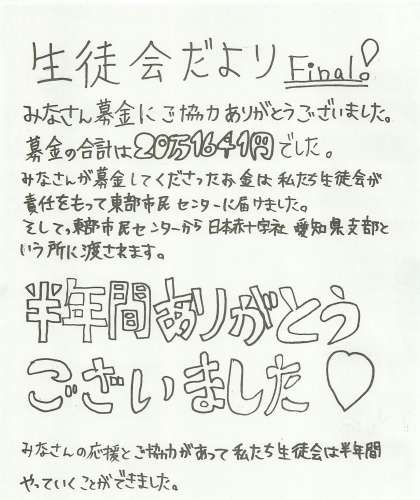 生徒会だより Final!
みなさん募金にご協力ありがとうございました。
募金の合計は20万1641円でした。
みなさんが募金してくださったお金は私たち生徒会が
責任をもって東部市民センターに届けました。
そして、東部市民センターから日本赤十字社 愛知県支部と
いう所に渡されます。
半年間ありがとう
ございました♡
みなさんの応援とご協力があって私たち生徒会は半年間
やっていくことができました。